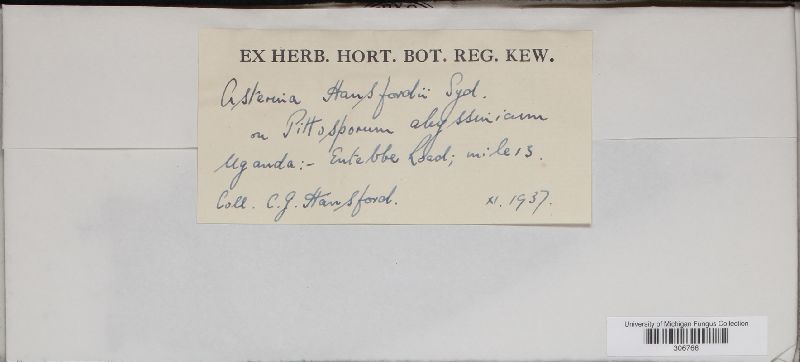 EX HERB. HORT. BOT. REG. KEW.
Asterina Hansfordii Syd.
on Pittosporum abyssinicum
Uganda:- Entebbe Road; mile 13.
Coll. C.G. Hansford. XI. 1937.
University of Michigan Fungus Collection
306766